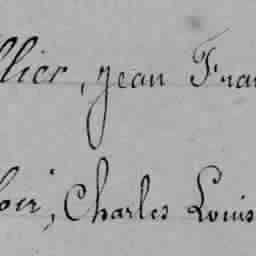 llier, jean Fran
ber, Charles Louis